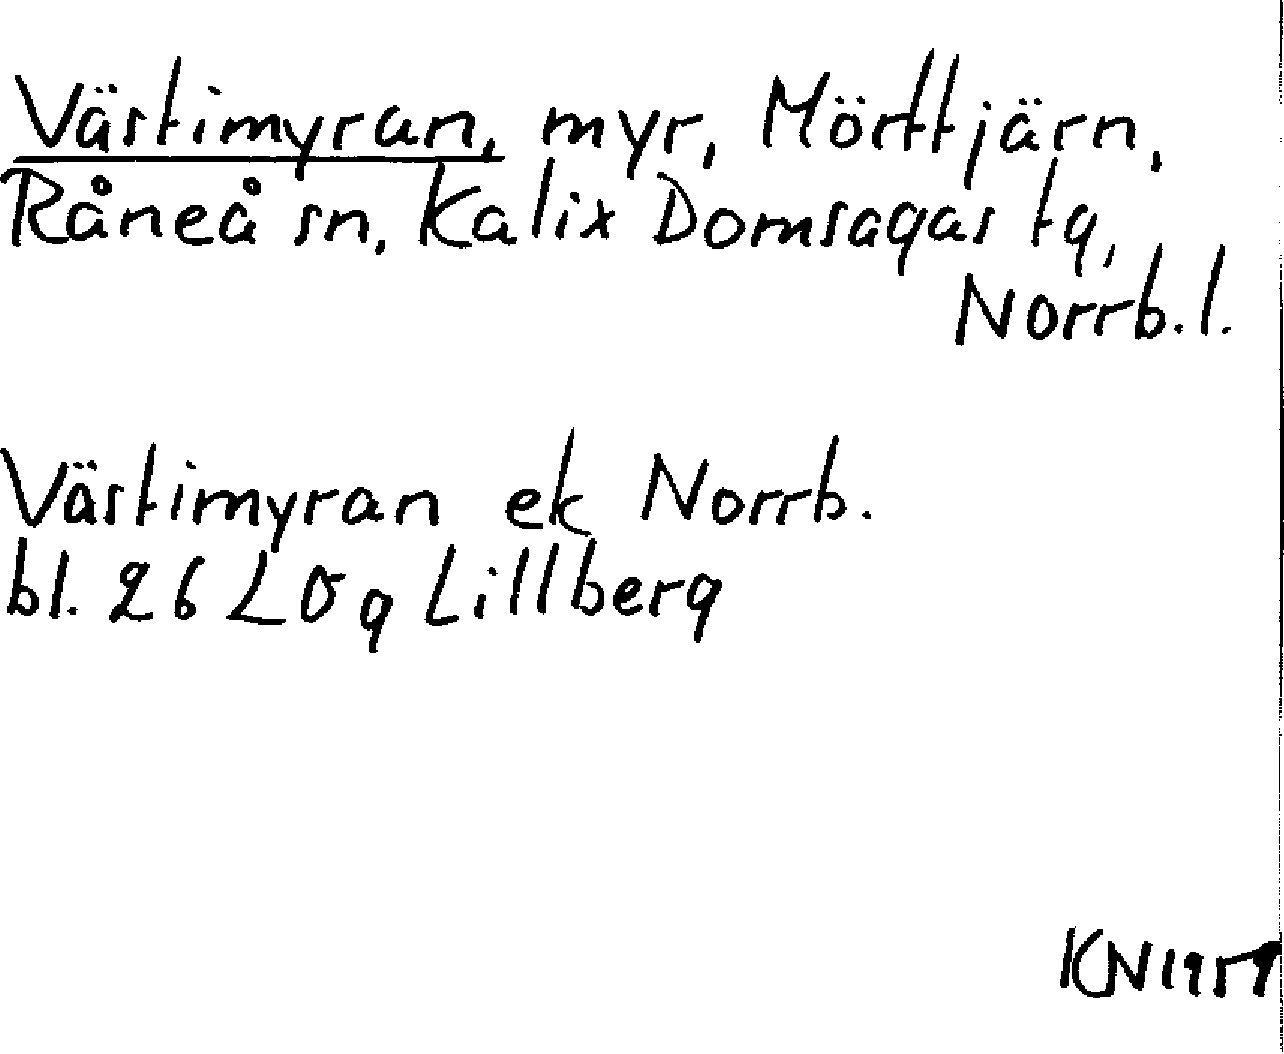 Västimyran, myr, Mörttjärn,
Råneå sn, Kalix Domsagas tg,
Norrb. l.
Västimyran ek Norrb.
bl. 26 L Ö g Lillberg
KN 1959